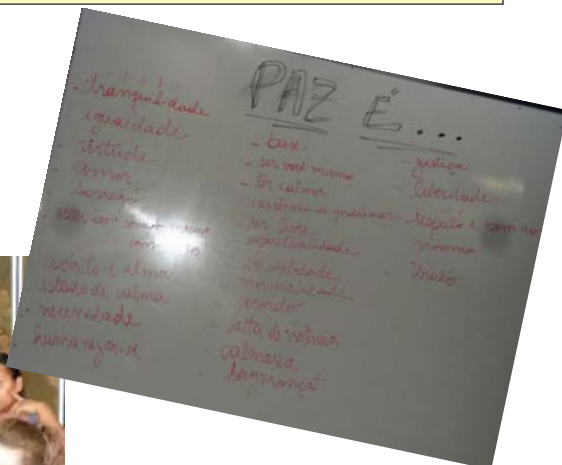 PAZ É...
- tranquilidade
- igualdade
- virtude
- amor
- sossego
- estar com
espírito e alma
estado de calma
- necessidade
- humanizar-se
- base
- ser você mesmo
- ter calma
- ser livre
- espiritualidade
- normalidade
- acordo
- falta de violência
- calmaria
- segurança
- justiça
- liberdade
- respeito e bem ao
próximo
- União